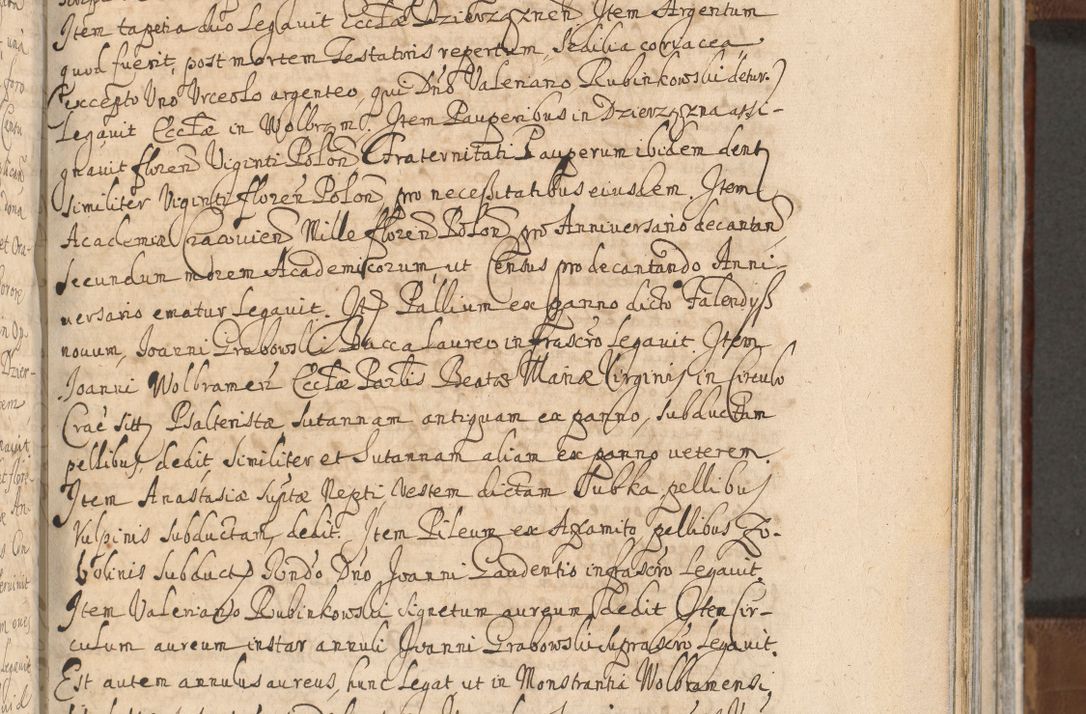 Item tapetia duo Legavit Eccłæ Dzierzgznen Item Argentum
quod fuerit, post mortem Testatoris repertum, Sedilia coryacea
excepto Uno Urceolo argenteo, qui Dno Valeriano Rubinkowski detur
Legavit Eccłæ in Wolbrom. Item Pauperibus in Dzierzgzna assi-
gnavit floren Viginti Polon Confraternitati Pauperum ibidem dent
similiter Viginti floren Polon pro necessitatibus eiusdem. Item
Academiæ Cracovien Mille floren Polon pro Anniversario decantan
secundum morem Academicorum, ut Census pro decantando Anni-
versario ematur Legavit. Itē Pallium ex panno dicto Falendyss
novum, Joanni Grabowski Baccalaureo infrascro Legavit. Item
Joanni Wolbramen Eccłæ Parlis Beatæ Mariæ Virginis in Circulo
Crac sitt Psalteristæ sutannam antiquam ex panno, subductam
pellibus, dedit, similiter et sutannam aliam ex panno veterem.
Item Anastasiæ suptæ Nepti vestem dictam Subka pellibus
Vulpinis subductam, dedit. Item Pileum ex Axamito pellibus Zo-
bolinis subduct Rondo Dno Joanni Gaudentio infrascro Legavit.
Item Valeriano Rubinkowski signetum aureum dedit Item Cir-
culum aureum instar annuli Joanni Grabowski suprascro Legavit.
Est autem annulus aureus, hunc Legat, ut in Monstrantia Wolbramensi,